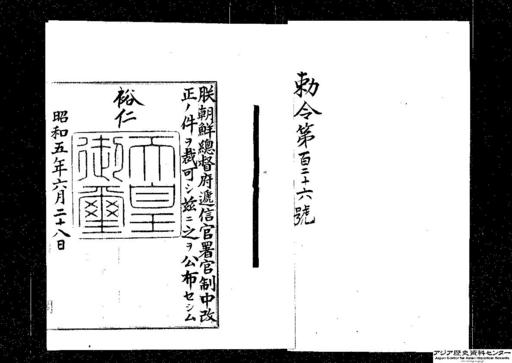 勅令第百二十六號
朕朝鮮總督府遞信官署官制中改
正ノ件ヲ裁可シ玆ニ之ヲ公布セシム
裕仁
天皇
御璽
昭和五年六月二十八日
アジア歴史資料センター
Japan Center for Asian Historical Records